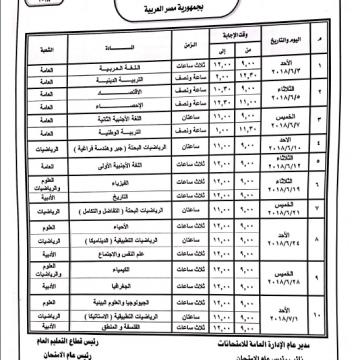 بجمهورية مصر العربية
م اليوم والتاريخ وقت الإجابة من إلى الزمن المادة الشعبة
١ الأحد ٢٠١٨/٦/٣ ٩,٠٠ ١٢,٠٠ ثلاث ساعات اللغة العربية العامة
ساعة ونصف التربية الدينية العامة
٢ الثلاثاء ٢٠١٨/٦/٥ ٩,٠٠ ١٠,٣٠ ساعة ونصف الاقتصاد العامة
ساعة ونصف الإحصاء العامة
٣ الخميس ٢٠١٨/٦/٧ ٩,٠٠ ١١,٠٠ ساعتان اللغة الأجنبية الثانية العامة
١١,٣٠ ١,٠٠ ساعة ونصف التربية الوطنية العامة
٤ الأحد ٢٠١٨/٦/١٠ ٩,٠٠ ١١,٠٠ ساعتان الرياضيات البحتة (جبر وهندسة فراغية) الرياضيات
٥ الثلاثاء ٢٠١٨/٦/١٢ ٩,٠٠ ١٢,٠٠ ثلاث ساعات اللغة الأجنبية الأولى العامة
٦ الثلاثاء ٢٠١٨/٦/١٩ ٩,٠٠ ١٢,٠٠ ثلاث ساعات الفيزياء العلوم والرياضيات
٩,٠٠ ١٢,٠٠ ثلاث ساعات التاريخ الأدبية
٧ الخميس ٢٠١٨/٦/٢١ ٩,٠٠ ١١,٠٠ ساعتان الرياضيات البحتة (التفاضل والتكامل) الرياضيات
٨ الأحد ٢٠١٨/٦/٢٤ ٩,٠٠ ١٢,٠٠ ثلاث ساعات الأحياء العلوم
٩,٠٠ ١١,٠٠ ساعتان الرياضيات التطبيقية (الديناميكا) الرياضيات
٩,٠٠ ١٢,٠٠ ثلاث ساعات علم النفس والاجتماع الأدبية
٩ الخميس ٢٠١٨/٦/٢٨ ٩,٠٠ ١٢,٠٠ ثلاث ساعات الكيمياء العلوم والرياضيات
٩,٠٠ ١٢,٠٠ ثلاث ساعات الجغرافيا الأدبية
١٠ الأحد ٢٠١٨/٧/١ ٩,٠٠ ١٢,٠٠ ثلاث ساعات الجيولوجيا والعلوم البيئية العلوم
٩,٠٠ ١١,٠٠ ساعتان الرياضيات التطبيقية (الاستاتيكا) الرياضيات
٩,٠٠ ١٢,٠٠ ثلاث ساعات الفلسفة و المنطق الأدبية
مدير عام الإدارة العامة للامتحانات رئيس قطاع التعليم العام
رئيس عام الامتحان